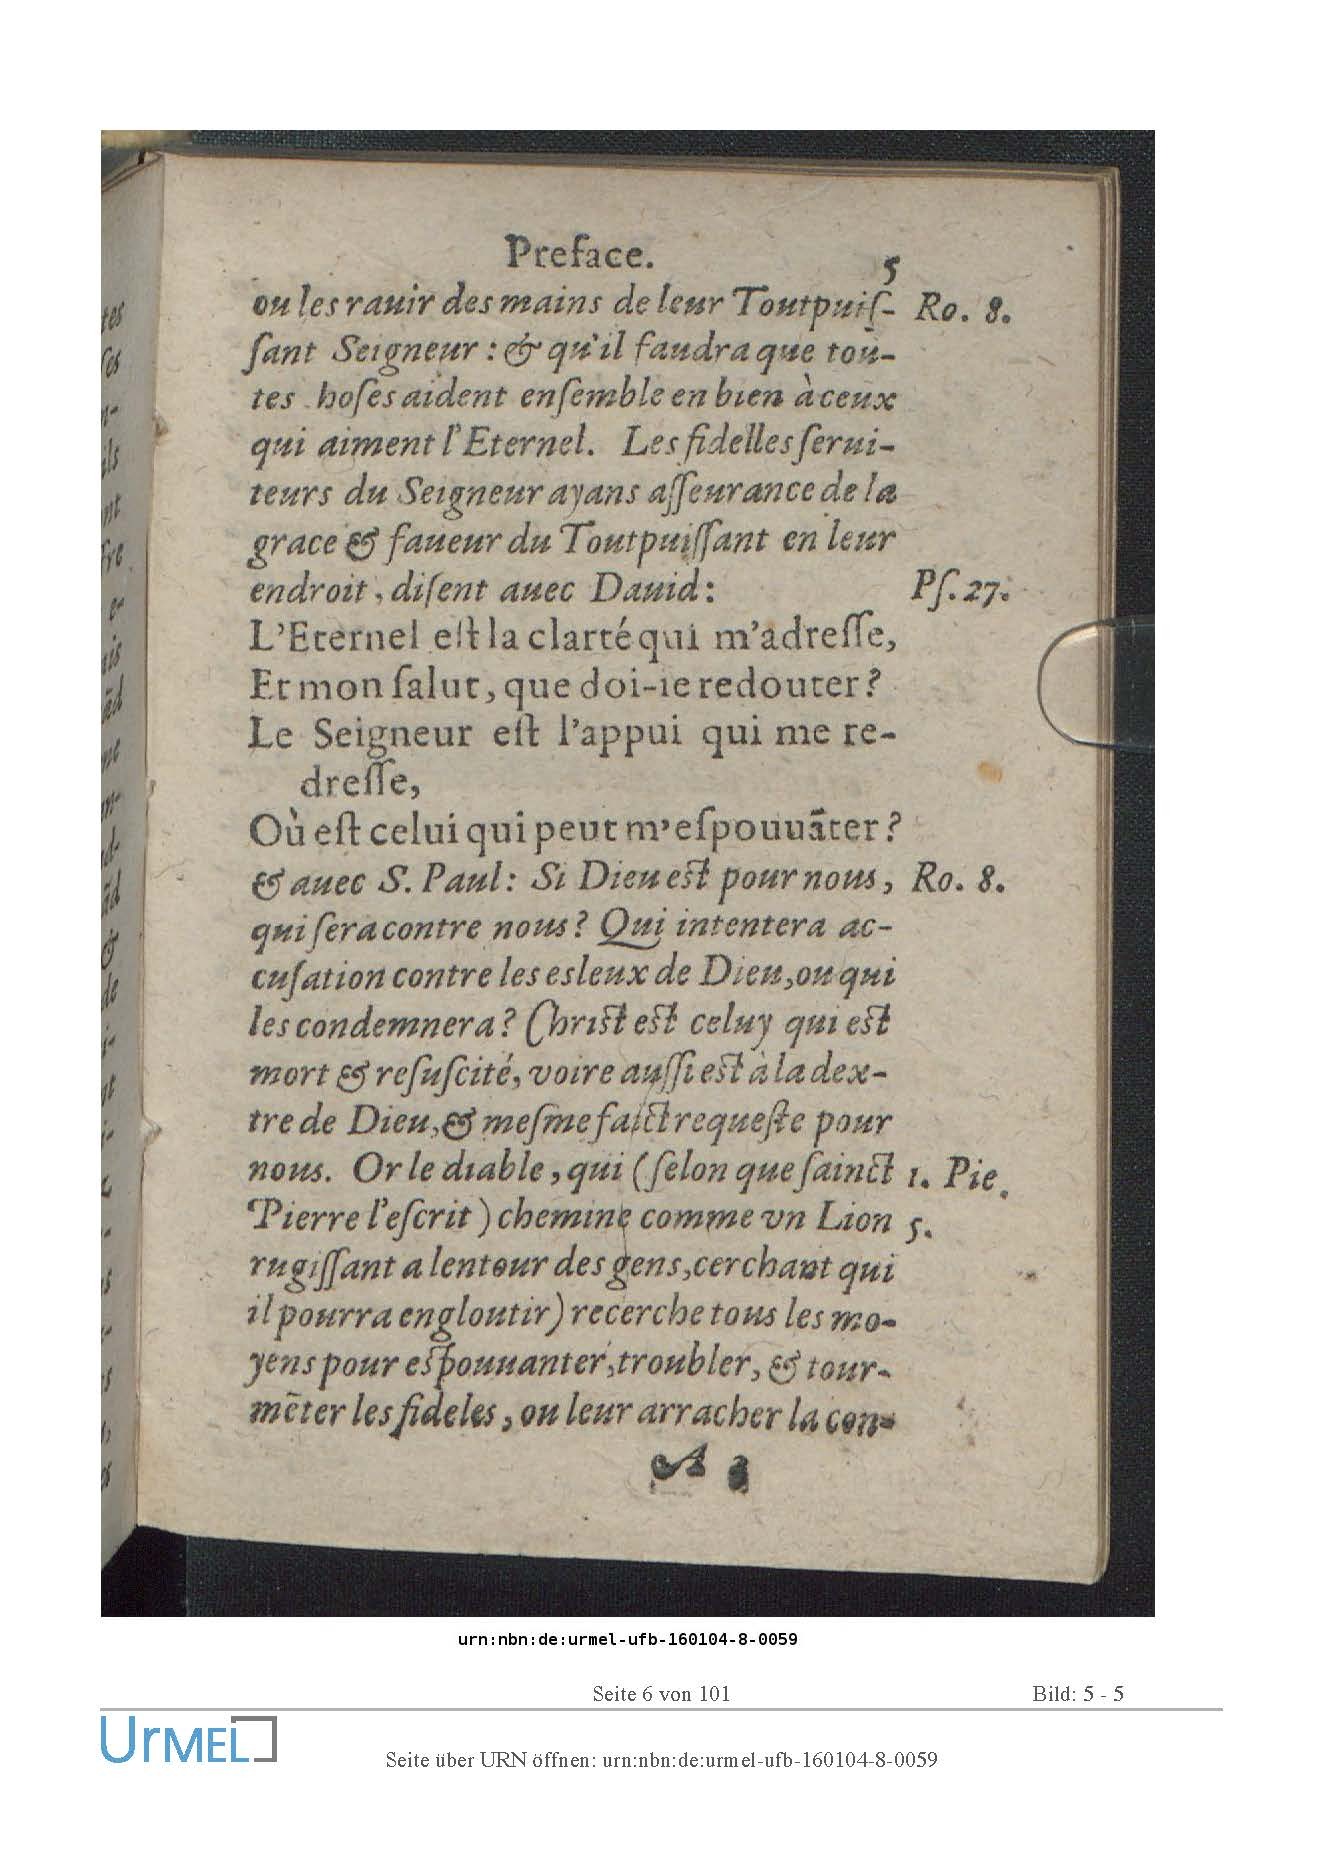 Preface. 5
ou les rauir des mains de leur Toutpuiſ- Ro. 8.
ſant Seigneur : & qu'il faudra que tou-
tes hoſes aident enſemble en bien à ceux
qui aiment l'Eternel. Les fidelles ſerui-
teurs du Seigneur ayans aſſeurance de la
grace & faueur du Toutpuiſſant en leur
endroit, diſent auec Dauid: Pſ. 27.
L'Eternel eſt la clarté qui m'adreſſe,
Et mon ſalut, que doi-ie redouter?
Le Seigneur eſt l'appui qui me re-
dreſſe,
Où eſt celui qui peut m'eſpouuāter?
& auec S. Paul: Si Dieu eſt pour nous, Ro. 8.
qui ſera contre nous? Qui intentera ac-
cuſation contre les esleux de Dieu, ou qui
les condemnera? Chriſt eſt celuy qui eſt
mort & reſuſcité, voire auſſi eſt à la dex-
tre de Dieu, & meſme faict requeſte pour
nous. Or le diable, qui (ſelon que ſainct 1. Pie.
Pierre l'eſcrit) chemine comme vn Lion 5.
rugiſſant a lentour des gens, cerchant qui
il pourra engloutir) recerche tous les mo-
yens pour eſpouuanter, troubler, & tour-
mēter les fideles, ou leur arracher la con-
A
tes
ſes
n-
ils
nt
e-
ais
ād
me
m-
d-
ād
&
de
i-
urn:nbn:de:urmel-ufb-160104-8-0059
Seite 6 von 101 Bild: 5 - 5
UrMEL
Seite über URN öffnen: urn:nbn:de:urmel-ufb-160104-8-0059